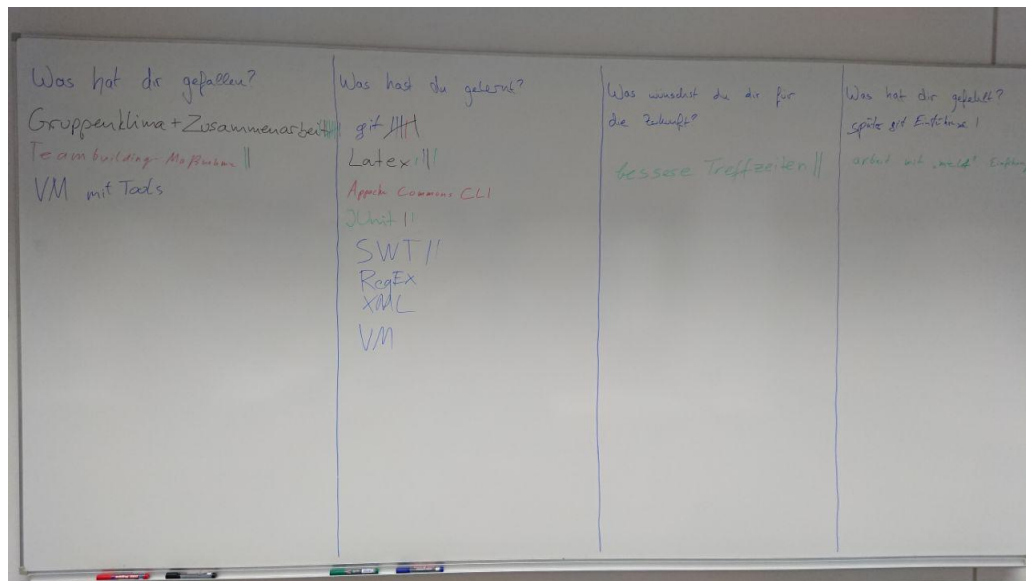 Was hat dir gefallen?
Gruppenklima + Zusammenarbeit
Teambuilding-Maßnahme ||
VM mit Tools
Was hast du gelernt?
git
Latex
Appache Commons CLI
JUnit
SWT
RegEx
XML
VM
Was wünschst du dir für
die Zukunft?
bessere Treffzeiten ||
Was hat dir gefehlt?
späte git Einführung |
arbeit mit